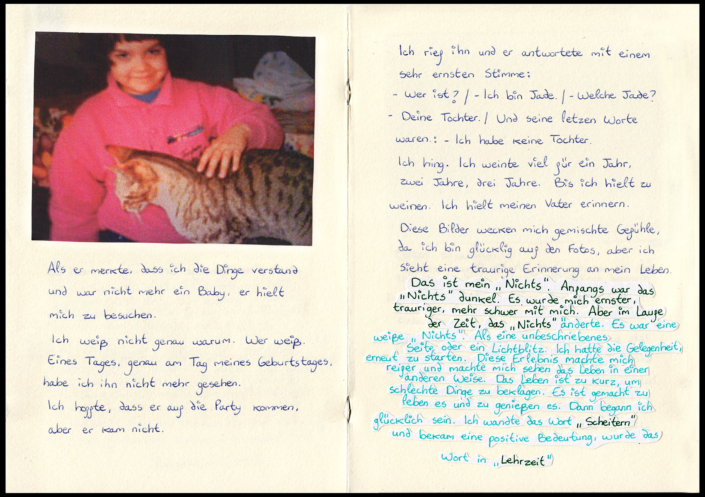 Als er merkte, dass ich die Dinge verstand
und war nicht mehr ein Baby, er hielt
mich zu besuchen.
Ich weiß nicht genau warum. Wer weiß.
Eines Tages, genau am Tag meines Geburtstages,
habe ich ihn nicht mehr gesehen.
Ich hoffte, dass er auf die Party kommen,
aber er kam nicht.
Ich rief ihn und er antwortete mit einem
sehr ernsten Stimme:
- Wer ist? / - Ich bin Jade. / - Welche Jade?
- Deine Tochter. / Und seine letzen Worte
waren: - Ich habe keine Tochter.
Ich hing. Ich weinte viel für ein Jahr,
zwei Jahre, drei Jahre. Bis ich hielt zu
weinen. Ich hielt meinen Vater erinnern.
Diese Bilder wecken mich gemischte Gefühle,
da ich bin glücklig auf den Fotos, aber ich
sieht eine traurige Erinnerung an mein Leben.
Das ist mein „Nichts". Anfangs war das
„Nichts" dunkel. Es wurde mich ernster,
trauriger, mehr schwer mit mich. Aber im Laufe
der Zeit, das „Nichts" änderte. Es war eine
weiße „Nichts". Als eine unbeschriebenes
Seite oder ein Lichtblitz. Ich hatte die Gelegenheit,
erneut zu starten. Diese Erlebnis machte mich
reifer und machte mich sehen das Leben in einer
anderen Weise. Das Leben ist zu kurz, um
schlechte Dinge zu beklagen. Es ist gemacht zu
leben es und zu genießen es. Dann begann ich
glücklich sein. Ich wandte das Wort „Scheitern"
und bekam eine positive Bedeutung, wurde das
Wort in „Lehrzeit"